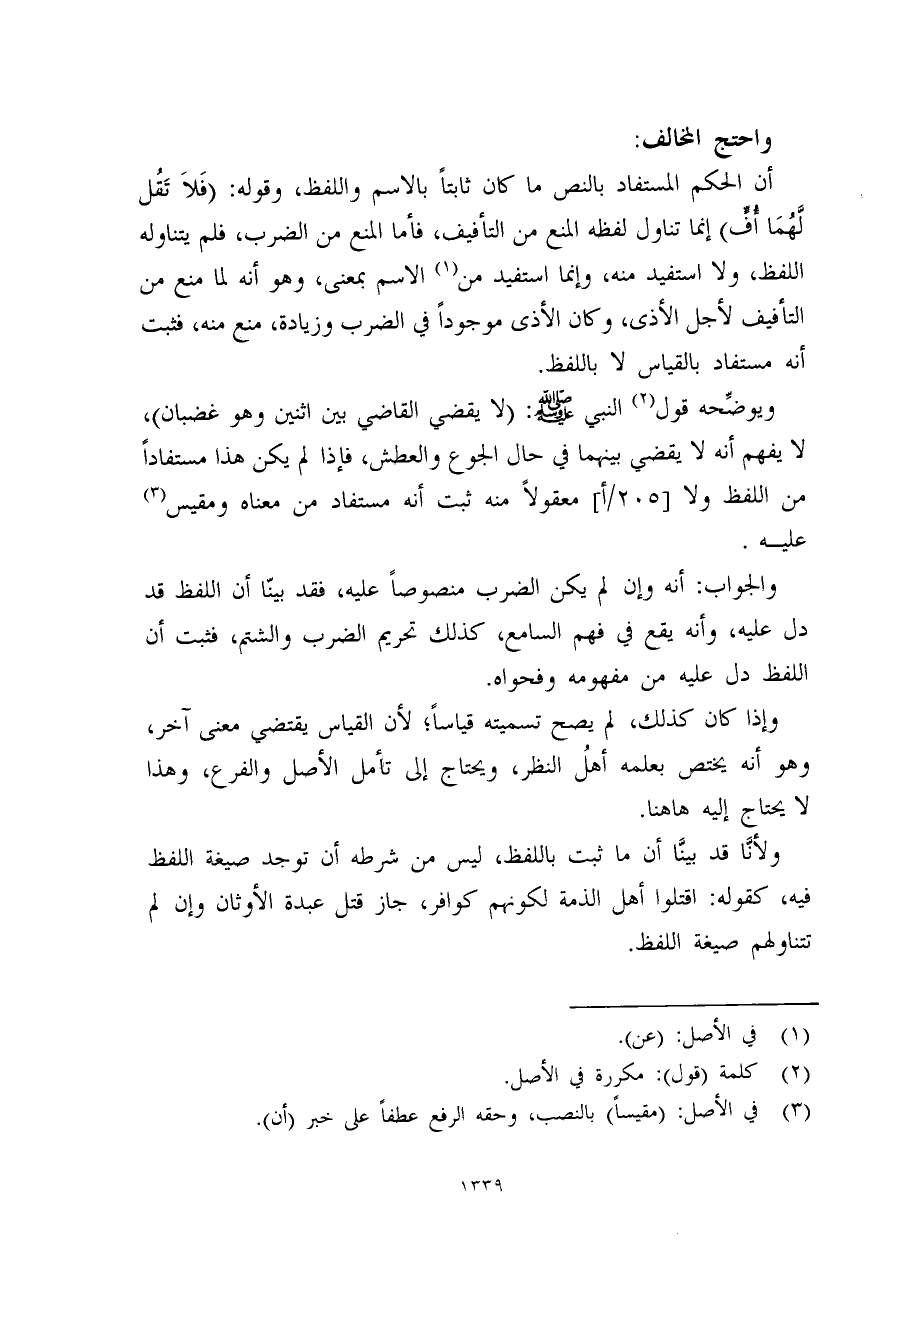 واحتج المخالف:
أن الحكم المستفاد بالنص ما كان ثابتاً بالاسم واللفظ، وقوله: (فَلاَ تَقُل
لَّهُمَا أُفٍّ) إنما تناول لفظه المنع من التأفيف، فأما المنع من الضرب، فلم يتناوله
اللفظ، ولا استفيد منه، وإنما استفيد من(١) الاسم بمعنى، وهو أنه لما منع من
التأفيف لأجل الأذى، وكان الأذى موجوداً في الضرب وزيادة، منع منه، فثبت
أنه مستفاد بالقياس لا باللفظ.
ويوضِّحه قول(٢) النبي ﷺ: (لا يقضي القاضي بين اثنين وهو غضبان)،
لا يفهم أنه لا يقضي بينهما في حال الجوع والعطش، فإذا لم يكن هذا مستفاداً
من اللفظ ولا [٢٠٥/أ] معقولاً منه ثبت أنه مستفاد من معناه ومقيس(٣)
عليــه .
والجواب: أنه وإن لم يكن الضرب منصوصاً عليه، فقد بينّا أن اللفظ قد
دل عليه، وأنه يقع في فهم السامع، كذلك تحريم الضرب والشتم، فثبت أن
اللفظ دل عليه من مفهومه وفحواه.
وإذا كان كذلك، لم يصح تسميته قياساً؛ لأن القياس يقتضي معنى آخر،
وهو أنه يختص بعلمه أهلُ النظر، ويحتاج إلى تأمل الأصل والفرع، وهذا
لا يحتاج إليه هاهنا.
ولأنَّا قد بينَّا أن ما ثبت باللفظ، ليس من شرطه أن توجد صيغة اللفظ
فيه، كقوله: اقتلوا أهل الذمة لكونهم كوافر، جاز قتل عبدة الأوثان وإن لم
تتناولهم صيغة اللفظ.
(١) في الأصل: (عن).
(٢) كلمة (قول): مكررة في الأصل.
(٣) في الأصل: (مقيساً) بالنصب، وحقه الرفع عطفاً على خبر (أن).
١٣٣٩